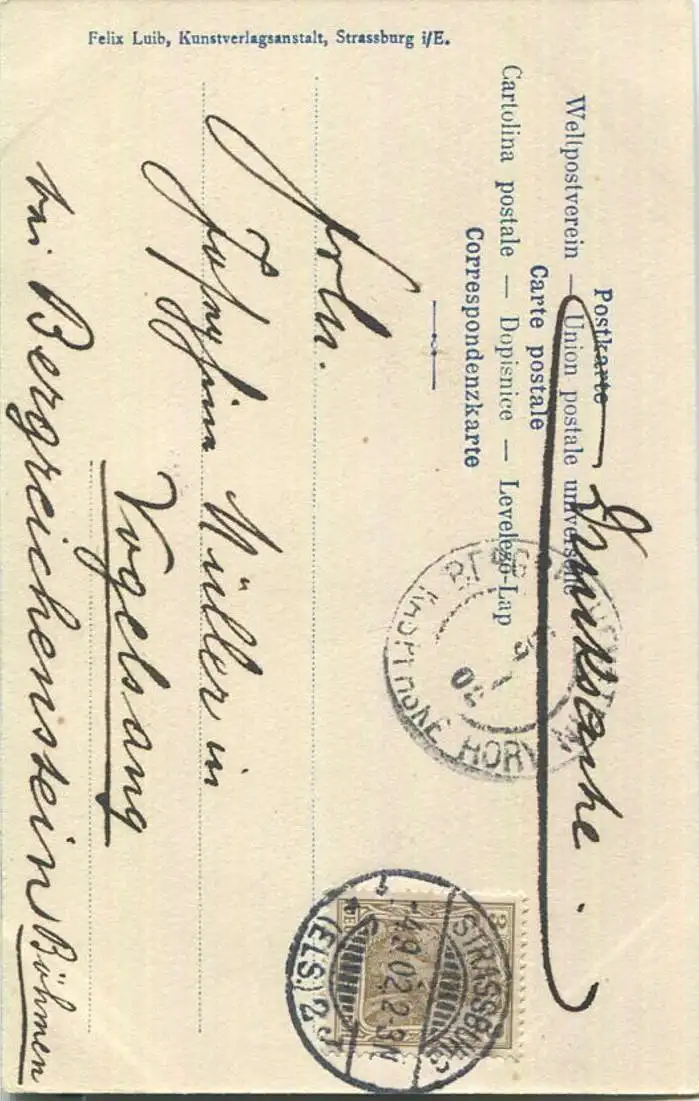 Felix Luib, Kunstverlagsanstalt, Strassburg i/E.
Postkarte
Weltpostverein — Union postale universelle
Carte postale
Cartolina postale — Dopisnice — Levelező-Lap
Correspondenzkarte
Drucksache.
Frln.
Josephine Müller in
Vogelsang
bei Bergreichenstein Böhmen
STRASSBURG
4.9.02.2-3N
(ELS.) 2
3
02
HORY